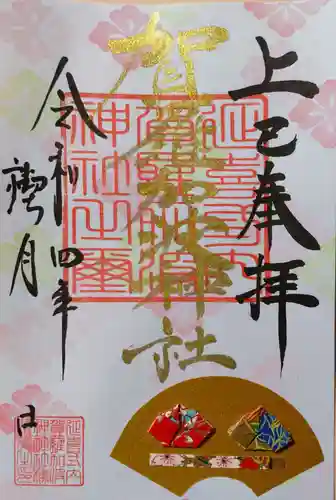 上巳奉拝
賀羅加波神社
令和四年
禊月
日
延喜式内
賀羅加波
神社之
延喜式内
賀羅加波
神社之